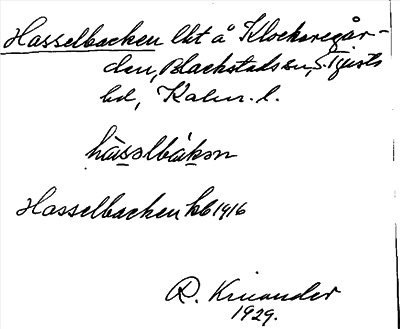 Hasselbacken lht å Klockaregår-
den, Blackstads sn, S. Tjusts
hd, Kalm. l.
hàsəlbàkən
Hasselbacken kb 1916
R. Kinander
1929.